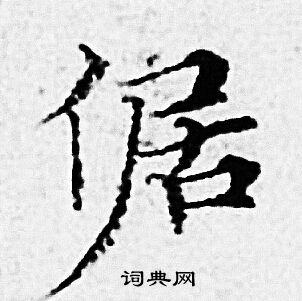 倨
词典网